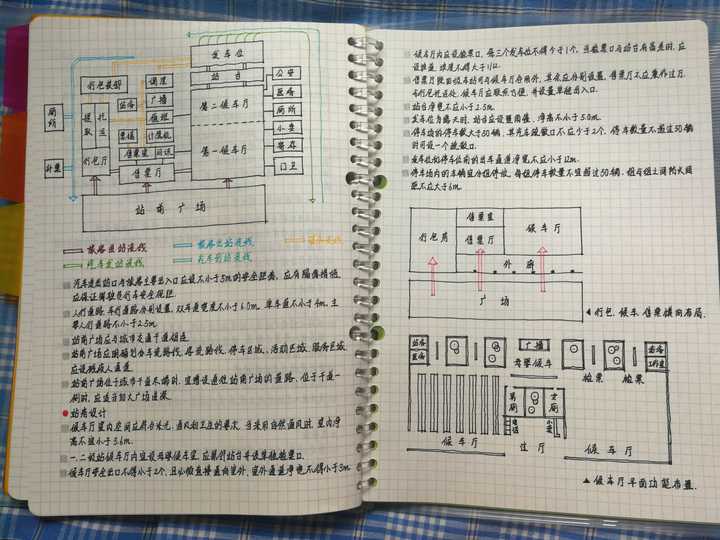 发车位
站台
行包装卸
调度
公安
站务
广播
第二候车厅
医务
厕所
提取
托运
值班
厕所
客值
计算机
小卖
计量
售票室
问讯
第一候车厅
寄存
行包厅
售票厅
门卫
站前广场
旅客进站流线
旅客出站流线
行包流线
汽车发站流线
汽车到站流线
汽车进出站口与旅客主要出入口应设不小于5m的安全距离，应有隔离措施，
应保证驾驶员行车安全视距。
人行道路、车行道路分别设置，双车道宽度不小于6.0m，单车道不小于4m，主
要人行道路不小于2.5m
站前广场应与城市交通干道相连
站前广场应明确划分车流路线、客流路线、停车区域、活动区域、服务区域
应设残疾人通道
站前广场位于城市干道尽端时，宜增设通往站前广场的道路，位于干道一
侧时，应适当加大广场进深。
站房设计
候车厅室内空间应符合采光、通风和卫生的要求，当采用自然通风时，室内净
高不低于3.6m.
一、二级站候车厅内宜设母婴候车室，应邻站台并设单独检票口。
候车厅安全出口不得小于2个，且必须直接通向室外，室外通道净宽不得小于3m
候车厅内应设检票口，每三个发车位不得少于1个，当检票口与站台有高差时，应
设坡道，坡度不得大于1/12
站台净宽不应小于2.5m
发车位为露天时，站台应设置雨篷，净高不小于5.0m
停车场的停车数大于50辆，其汽车疏散口不应小于2个，停车数量不超过50辆
时可设一个疏散口。
发车位和停车位前的出车通道净宽不应小于12m.
售票室
行包房
售票厅
候车厅
外廊
广场
行包、候车、售票横向布局.
站务
医务
广播
母婴候车
检票
检票
站务
工作室
男厕
女厕
电话
小卖
候车厅
过厅
候车厅
候车厅平面功能布置.